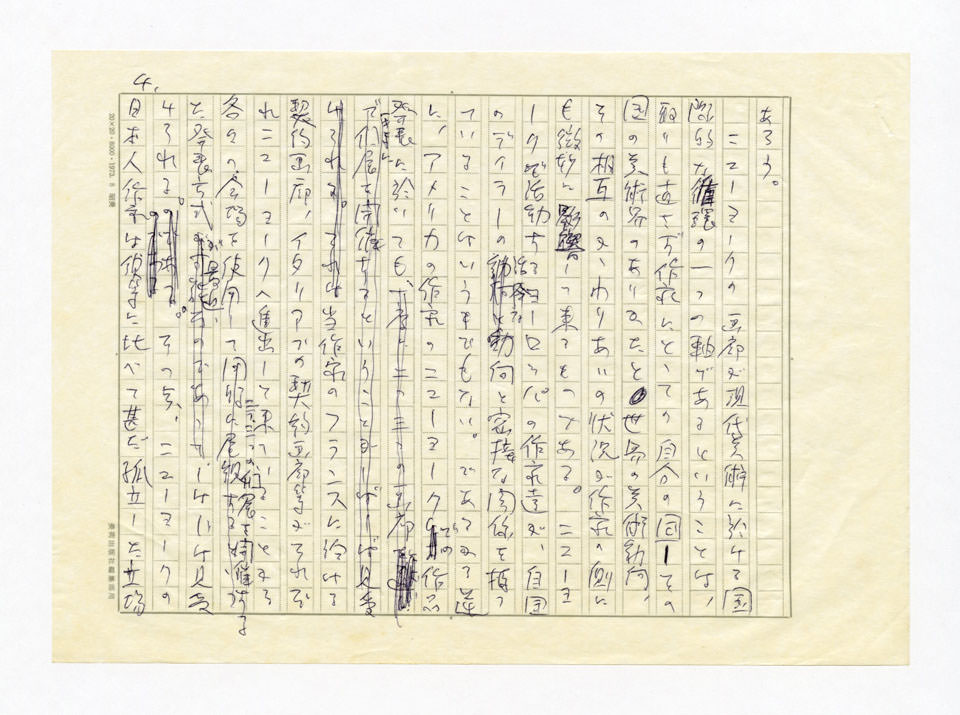 4.
あろう。
ニューヨークの画廊が現代美術に於ける国
際的な循環の一つの軸であるということは、
取りもあさず作家にとっての自分の国しての
国の美術界のありかたと世界の美術動向、
その相互のかゝわりあいの状況が作家の側に
も微妙に影響して来るもつである。ニューヨ
ークで活動するヨーロッパの作家達が、自国
のディラーの活発な動向と密接な関係を持っ
ていることはいうまでもない。であるから逆
に、アメリカの作家のニューヨークでの作品
発表に於いても、一度に二つ三つの画廊
で個展を開催するということがしばしば見受
けられる。それは当作家のフランスに於ける
契約画廊、イタリアでの契約画廊等がそれぞ
れニューヨークへ進出して来ていることから
各々の会場を使用して同時に二つ三つの個展を開催する
た発表方式がしばしば見受
けられる。その点、ニューヨークの
日本人作家は彼等に比べて甚だ孤立した立場
20×20・8000・1973. 8
美術出版社編集部用